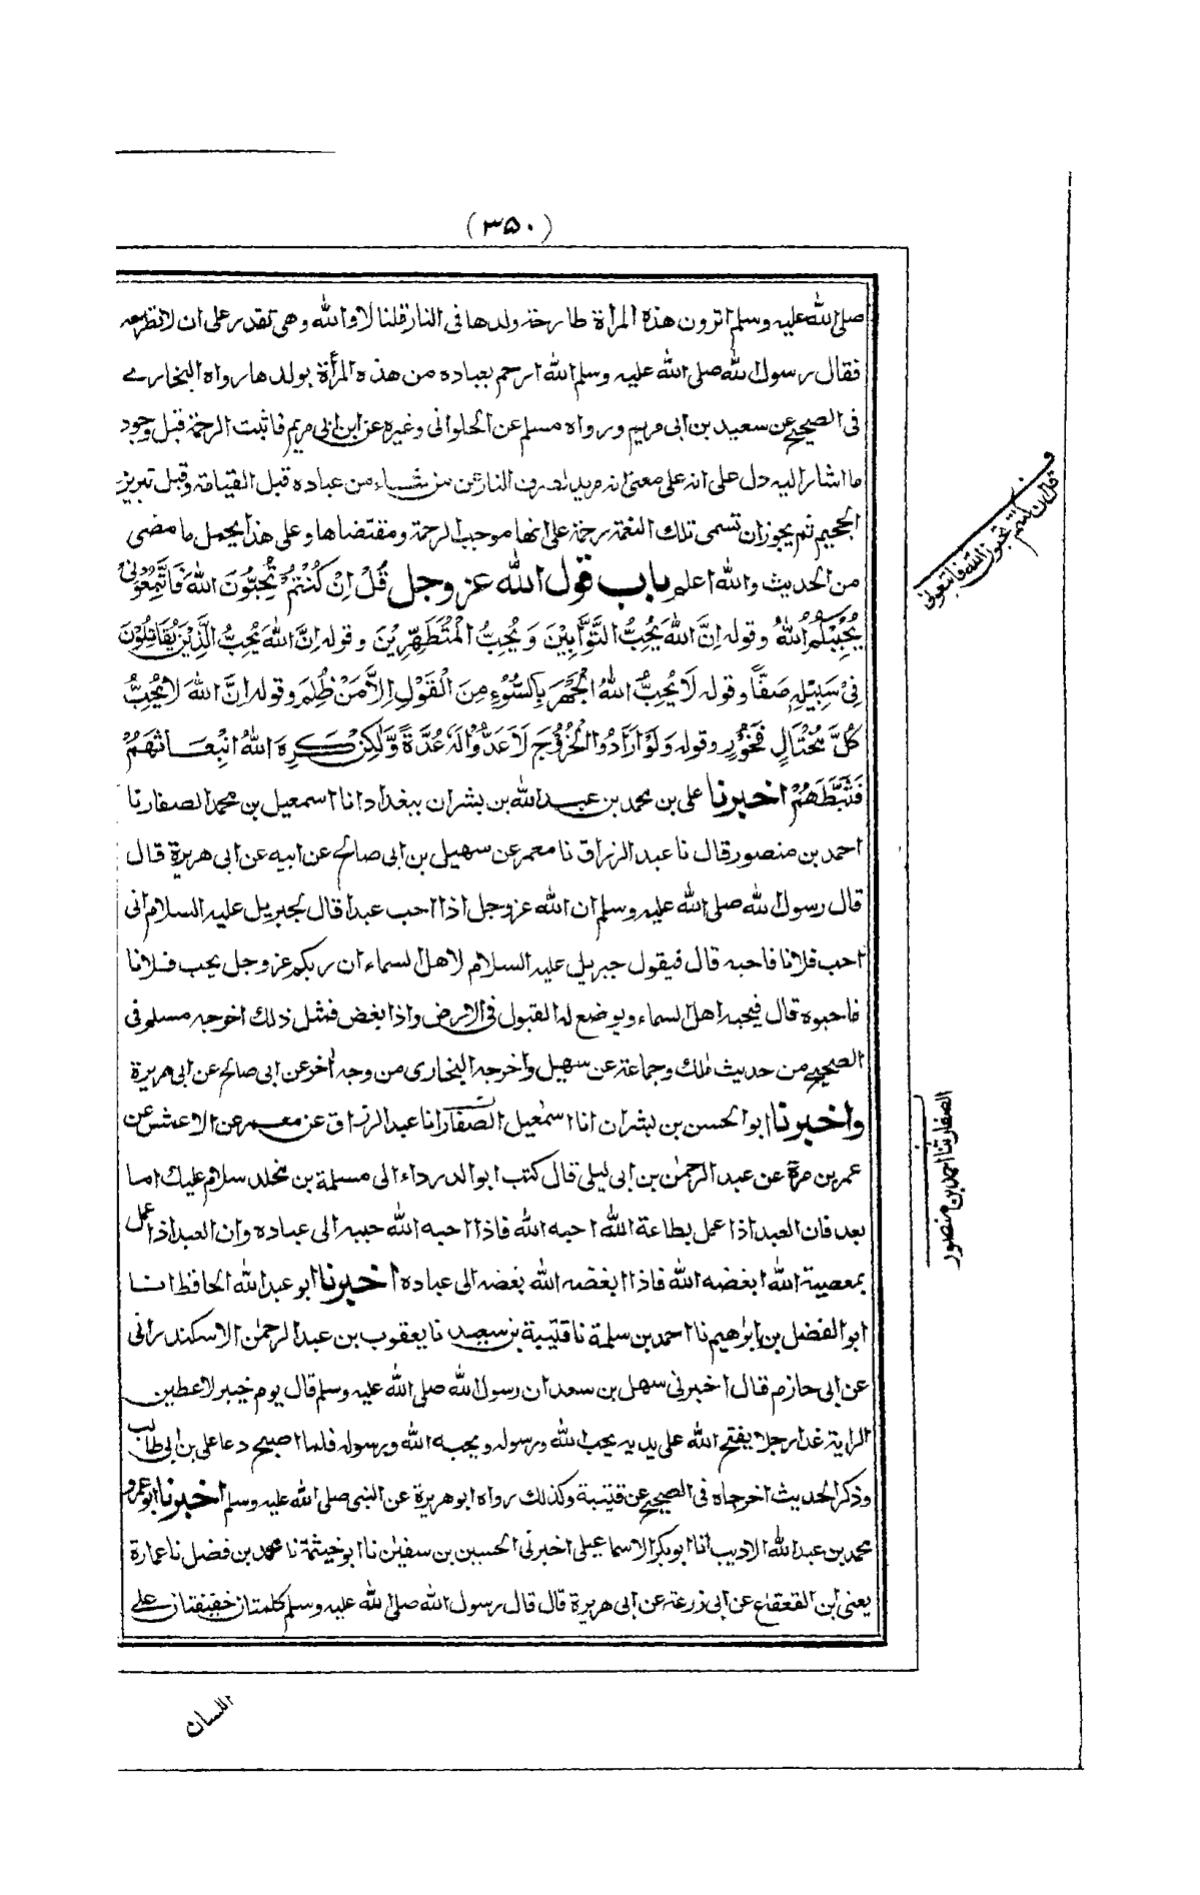 (٣٥٠)
صلى الله عليه وسلم اترون هذه المرأة طارحة ولدها فى النار قلنا لا والله وهى تقدر على ان لا تطرحه
فقال رسول الله صلى الله عليه وسلم الله ارحم بعباده من هذه المرأة بولدها رواه البخارے
فى الصحيح عن سعيد بن ابى مريم ورواه مسلم عن الحلوانى وغيره عن ابن ابى مريم فاثبت الرحمة قبل وجود
ما اشار اليه دل على انه على معنى انه مريد لصرف النار عن من شاء من عباده قبل القيامة وقبل تبريز
الجحيم ثم يجوز ان تسمى تلك النعمة رحمة على انها موجب الرحمة ومقتضاها وعلى هذا يحمل ما مضى
من الحديث والله اعلم باب قول الله عز وجل قُلْ اِنْ كُنْتُمْ تُحِبُّونَ اللهَ فَاتَّبِعُوْنِى
يُحْبِبْكُمُ اللهُ وقوله اِنَّ اللهَ يُحِبُّ التَّوَّابِيْنَ وَيُحِبُّ الْمُتَطَهِّرِيْنَ وقوله اِنَّ اللهَ يُحِبُّ الَّذِيْنَ يُقَاتِلُوْنَ
فِىْ سَبِيْلِهٖ صَفًّا وقوله لَا يُحِبُّ اللهُ الْجَهْرَ بِالسُّوْٓءِ مِنَ الْقَوْلِ اِلَّا مَنْ ظُلِمَ وقوله اِنَّ اللهَ لَا يُحِبُّ
كُلَّ مُخْتَالٍ فَخُوْرٍ وقوله وَلَوْ اَرَادُوا الْخُرُوْجَ لَاَعَدُّوْا لَهٗ عُدَّةً وَّلٰكِنْ كَرِهَ اللهُ انْۢبِعَاثَهُمْ
فَثَبَّطَهُمْ اخبرنا على بن محمد بن عبد الله بن بشران ببغداد انا اسمعيل بن محمد الصفار نا
احمد بن منصور قال نا عبد الرزاق نا معمر عن سهيل بن ابى صالح عن ابيه عن ابى هريرة قال
قال رسول الله صلى الله عليه وسلم ان الله عز وجل اذا احب عبدا قال لجبريل عليه السلام انى
احب فلانا فاحبه قال فيقول جبريل عليه السلام لاهل السماء ان ربكم عز وجل يحب فلانا
فاحبوه قال فيحبه اهل السماء ويوضع له القبول فى الارض واذا ابغض فمثل ذلك اخرجه مسلم فى
الصحيح من حديث مٰلك وجماعة عن سهيل واخرجه البخارى من وجه اٰخر عن ابى صالح عن ابى هريرة
واخبرنا ابو الحسن بن بشران انا اسمٰعيل الصفار انا عبد الرزاق عن معمر عن الاعمش عن
عمر بن مرة عن عبد الرحمٰن بن ابى ليلى قال كتب ابو الدرداء الى مسلمة بن مخلد سلام عليك اما
بعد فان العبد اذا عمل بطاعة الله احبه الله فاذا احبه الله حببه الى عباده وان العبد اذا عمل
بمعصية الله ابغضه الله فاذا ابغضه الله بغضه الى عباده اخبرنا ابو عبد الله الحافظ انا
ابو الفضل بن ابرٰهيم نا احمد بن سلمة نا قتيبة بن سعيد نا يعقوب بن عبد الرحمٰن الاسكندرانى
عن ابى حازم قال اخبرنى سهل بن سعد ان رسول الله صلى الله عليه وسلم قال يوم خيبر لاعطين
الراية غدا رجلا يفتح الله على يديه يحب الله ورسوله ويحبه الله ورسوله فلما اصبح دعا على بن ابى طالب
وذكر الحديث اخرجاه فى الصحيح عن قتيبة وكذلك رواه ابو هريرة عن النبى صلى الله عليه وسلم اخبرنا ابو عمرو
محمد بن عبد الله الاديب انا ابو بكر الاسماعيلى اخبرنى الحسين بن سفيٰن نا ابو خيثمة نا محمد بن فضل نا عمارة
يعنى ابن القعقاع عن ابى زرعة عن ابى هريرة قال قال رسول الله صلى الله عليه وسلم كلمتان خفيفتان على
اللسان
قل ان كنتم تحبون الله فاتبعونى
الصفار ثنا احمد بن منصور